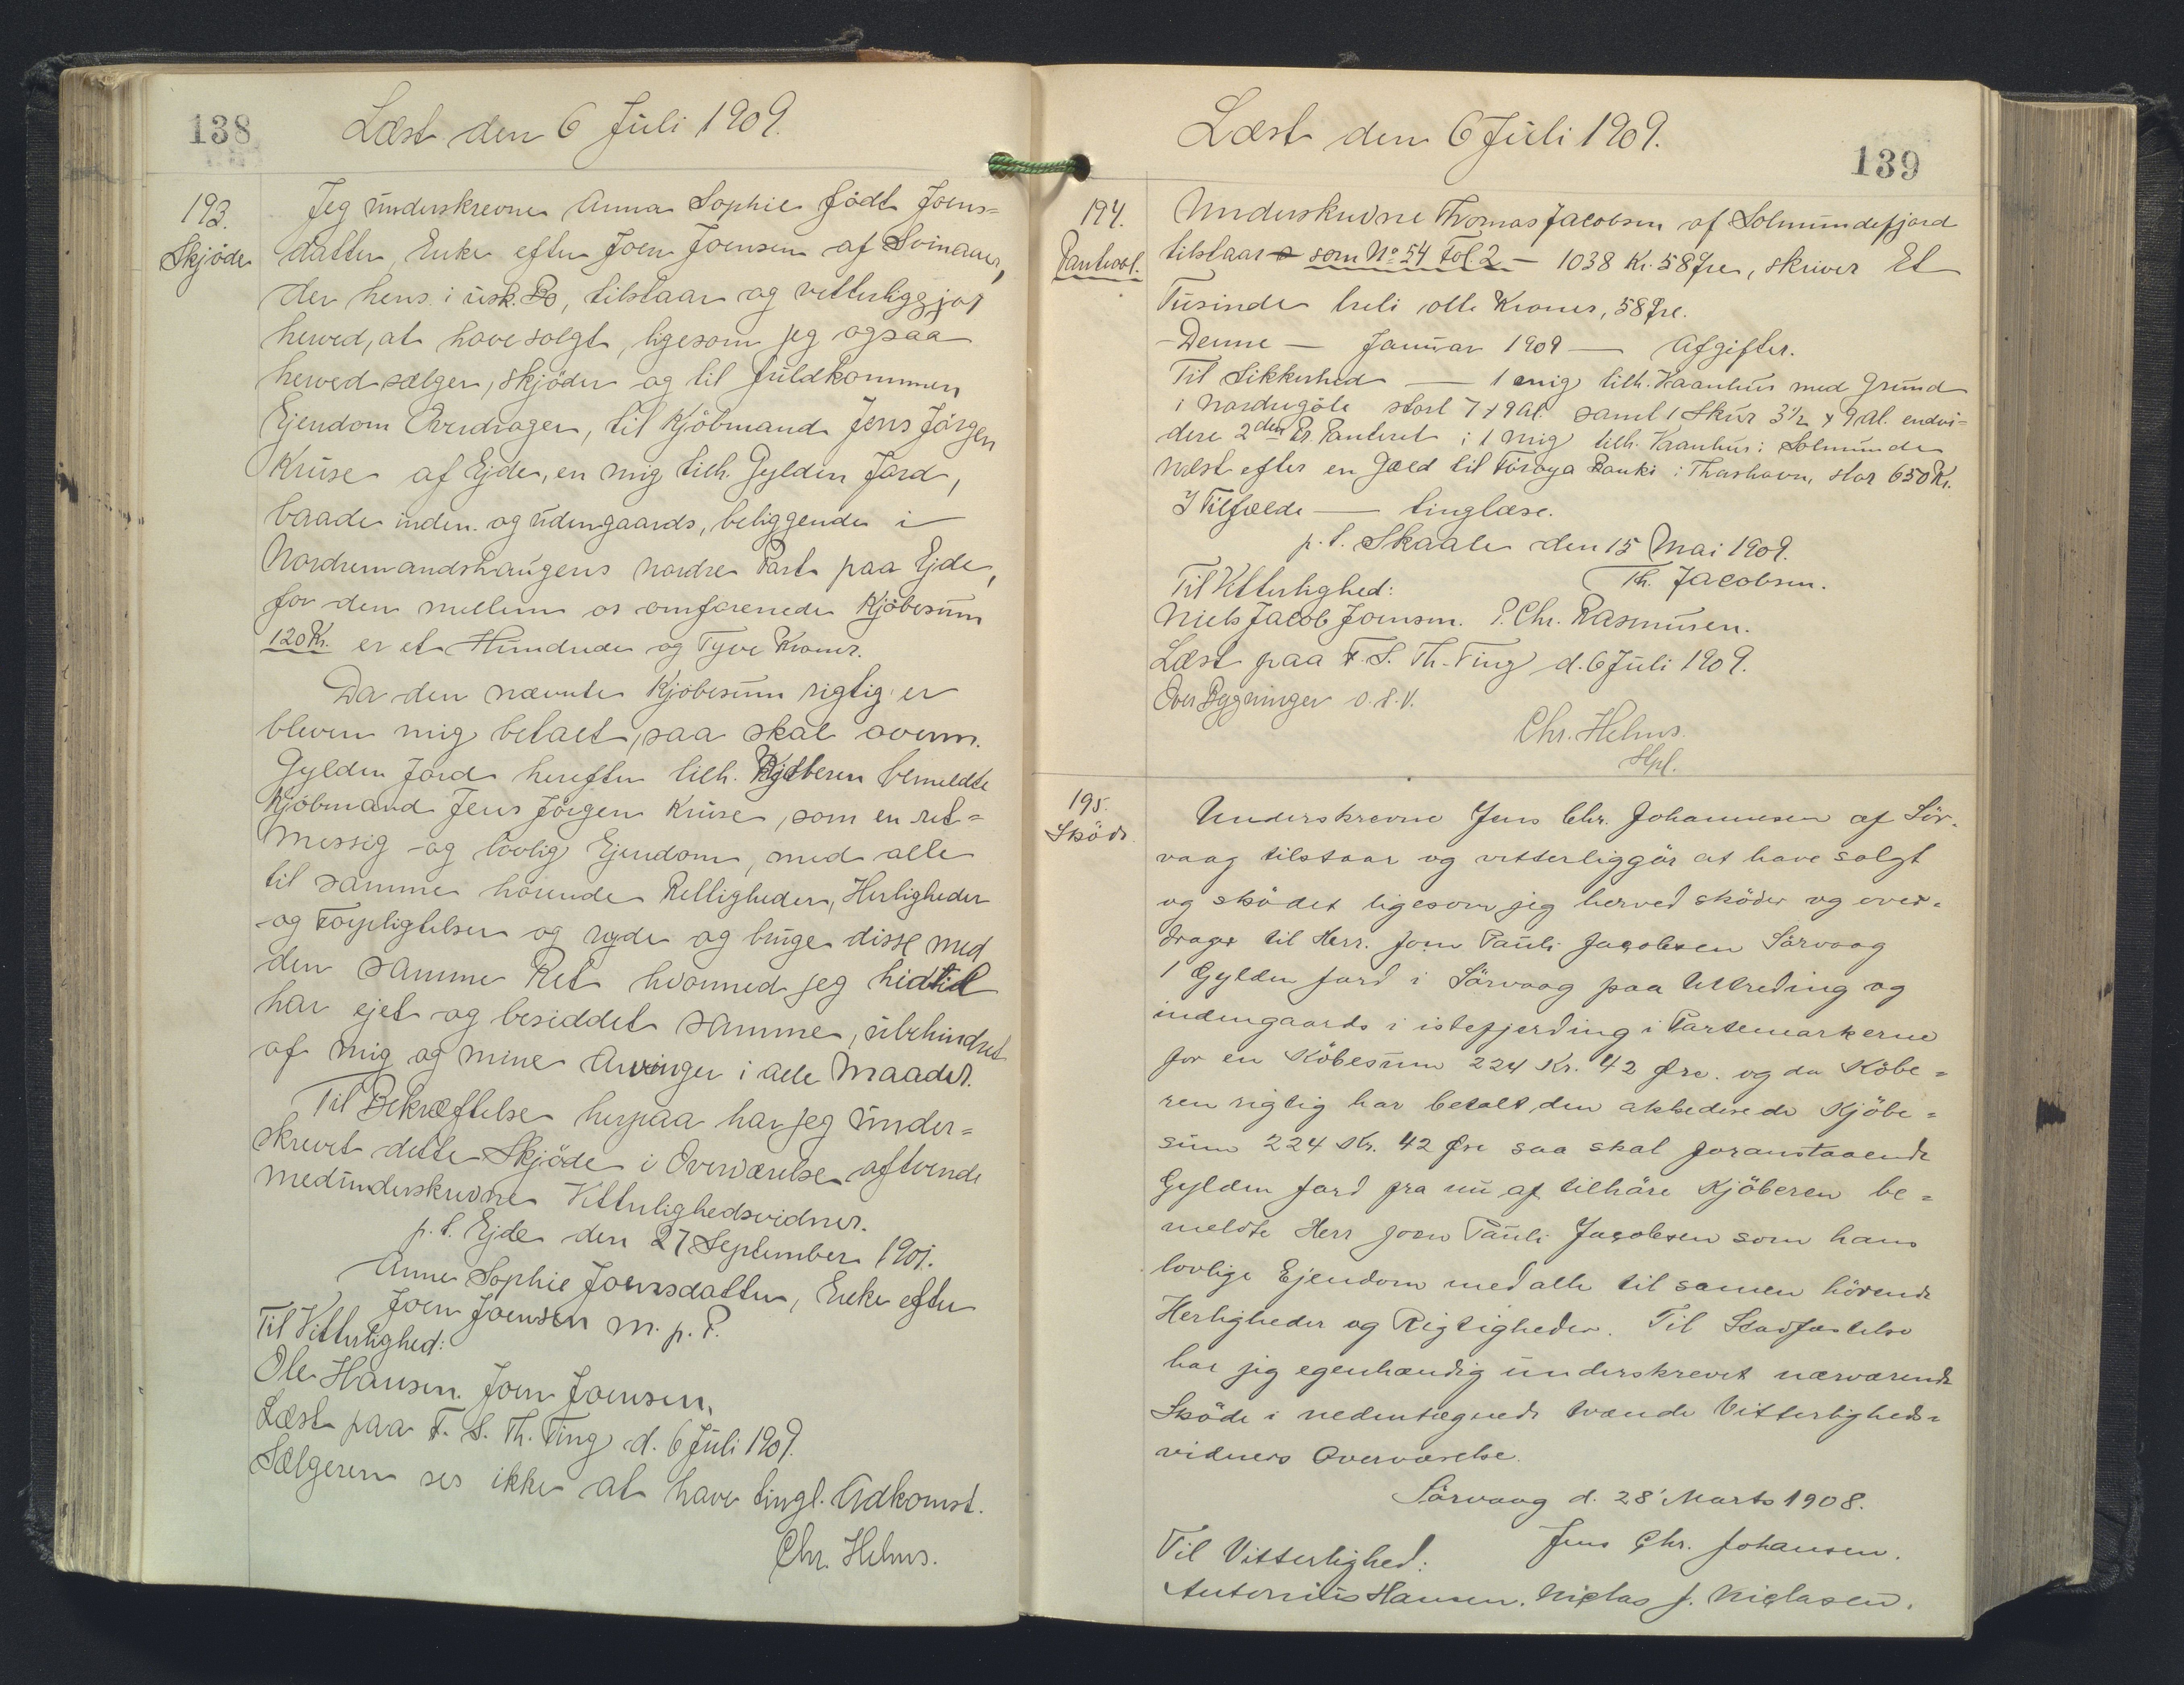 138
Læst den 6 Juli 1909.
193.
Skjøde
Jeg underskrevne Anna Sophie født Joens=
datter, Enke efter Joen Joensen af Svinaaer,
der hens. i usk. Bo, tilstaar og vitterliggjør
herved, at have solgt, ligesom jeg ogsaa
herved sælger, skjøder og til fuldkommen
Ejendom Overdrager, til Kjøbmand Jens Jørgen
Kruse af Ejde, en mig tilh. Gylden Jord,
baade inden. og udengaards, beliggende i
Nordremandshaugens nordre Part paa Ejde,
for den mellem os omforenede Kjøbesum
120 Kr. er et Hundrede og Tyve Kroner.
Da den nævnte Kjøbesum rigtig er
bleven mig betalt, saa skal ovenn.
Gylden Jord herefter tilh. Kjøberen bemeldte
Kjøbmand Jens Jørgen Kruse, som en ret=
messig og lovlig Ejendom, med alle
til samme hørende Rettigheder, Herligheder
og Forpligtelser og nyde og bruge disse med
den samme Ret hvormed jeg hidtil
har ejet og besiddet samme, ubehindret
af mig og mine Arvinger i alle Maader.
Til Bekræftelse herpaa har jeg under=
skrevet dette Skjøde i Overværelse af tvende
medunderskrevne Vitterlighedsvidner.
p. t. Ejde den 27 September 1901.
Anne Sophie Joensdatter, Enke efter
Joen Joensen m. p. P.
Til Vitterlighed:
Ole Hansen. Joen Joensen.
Læst paa F. S. Th. Ting d. 6 Juli 1909.
Sælgeren ses ikke at have tingl. Adkomst.
Chr. Helms.
139
Læst den 6 Juli 1909.
194.
Panteobl.
Underskrevne Thomas Jacobsen af Solmundefjord
tilstaar som No 54 Fol. 2 – 1038 Kr. 58 Øre, skriver Et
Tusinde treti otte Kroner, 58 Øre.
– Denne — Januar 1909 — Afgifter.
Til Sikkerhed — 1 mig tilh. Vaanhus med Grund
i Nordregøte stort 7 x 9 Al. samt 1 Skur 3½ x 9 Al. endvi=
dere 2den Pr. Panteret i 1 mig tilh. Vaanhus i Solmunde
næst efter en Gæld til Föroya Banki i Thorshavn, stor 650 Kr.
I Tilfælde — tinglæse.
p. t. Skaale den 15 Mai 1909.
Th. Jacobsen.
Til Vitterlighed:
Niels Jacob Joensen. P. Chr. Rasmusen.
Læst paa F. S. Th. Ting d. 6 Juli 1909.
Over Bygninger o. s. v.
Chr. Helms.
Hpl.
195.
Skøde
Underskrevne Jens Chr. Johannesen af Sør-
vaag tilstaar og vitterliggør at have solgt
og skødet ligesom jeg herved skøder og over=
drager til Herr. Joen Pauli Jacobsen Sørvaag
1 Gylden Jord i Sørvaag paa Utreding og
indengaards i istefjerding i Partemarkerne
for en Købesum 224 Kr. 42 Øre. og da Købe=
ren rigtig har betalt den akkederede Kjøbe=
sum 224 Kr. 42 Øre saa skal foranstaaende
Gylden Jord fra nu af tilhøre Kjøberen be=
meldte Herr Joen Pauli Jacobsen som hans
lovlige Ejendom med alle til samen hörende
Herligheder og Rigtigheder. Til Stadfæstelse
har jeg egenhændig underskrevet nærværende
Skøde i nedentegnede tvende Vitterligheds=
vidners Overværelse.
Sørvaag d. 28' Marts 1908.
Jens Chr. Johansen.
Til Vitterlighed:
Antonius Hansen. Niclas J. Niclasen.